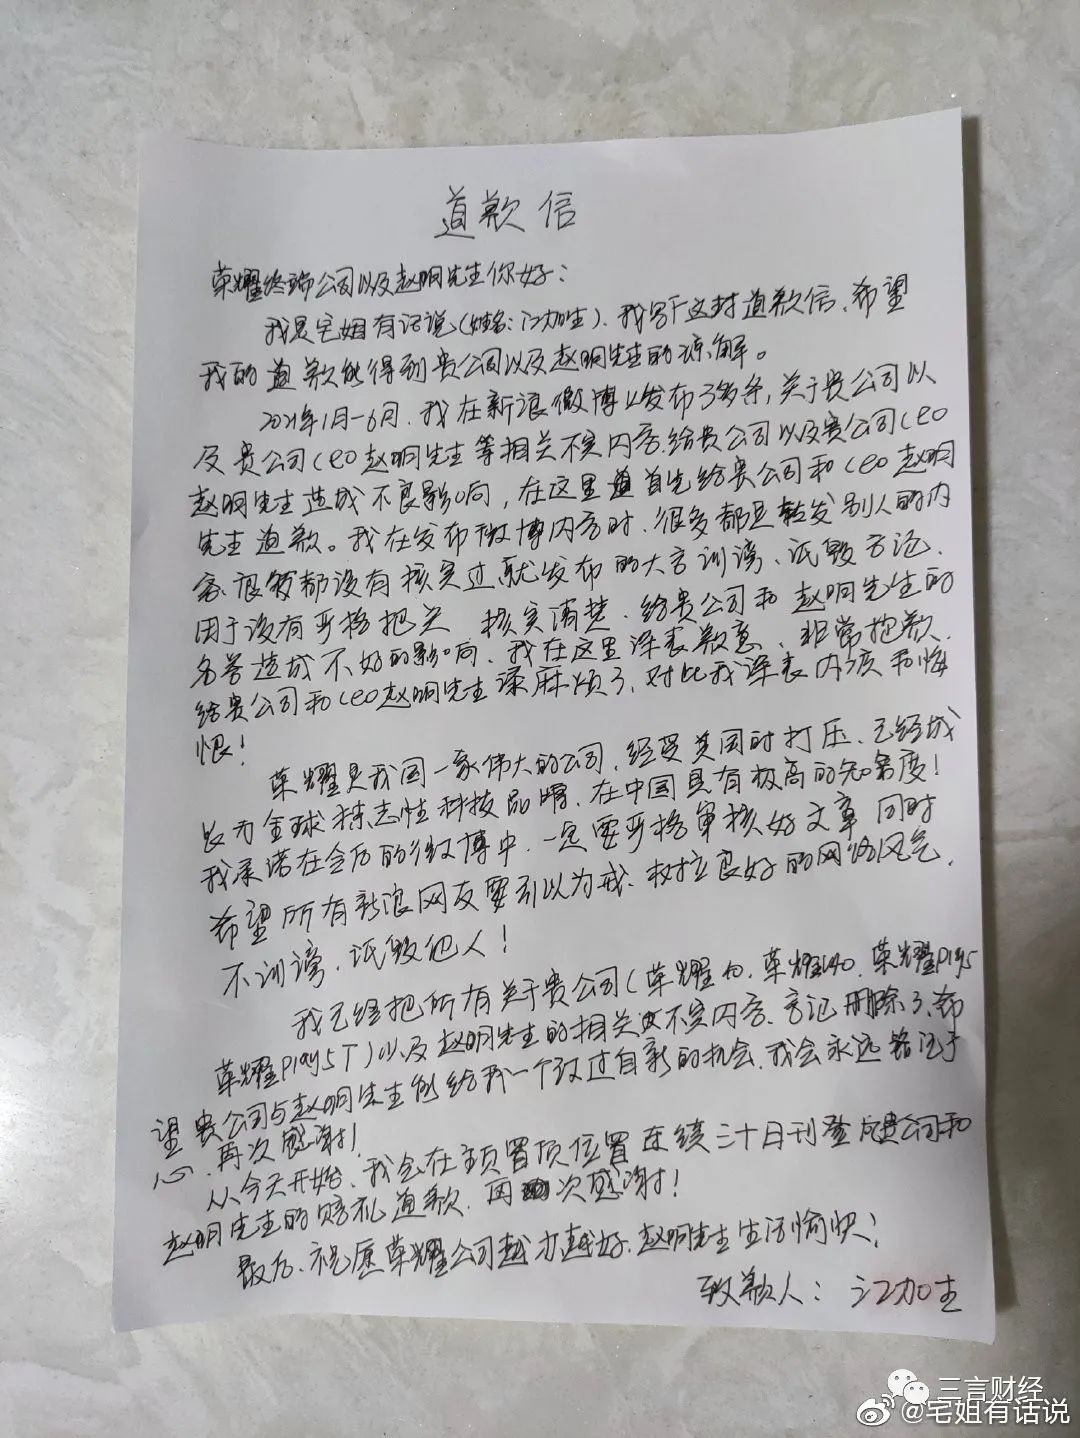 道歉信
荣耀终端公司以及赵明先生你好：
我是宅姐有话说(姓名：江加生)、我写下这封道歉信、希望
我的道歉能得到贵公司以及赵明先生的谅解。
2021年1月-6月、我在新浪微博上发布了多条，关于贵公司以
及贵公司ceo赵明先生等相关不实内容.给贵公司以及贵公司ceo
赵明先生造成不良影响，在这里首先给贵公司和ceo赵明
先生道歉。我在发布微博内容时、很多都是转发别人的内
容、很多都没有核实过就发布的大言训谤、诋毁言论、
用于没有严格把关 核实清楚、给贵公司和赵明先生的
名誉造成不好的影响、我在这里深表歉意、非常抱歉、
给贵公司和ceo赵明先生添麻烦了、对此我深表内疚和悔
恨！
荣耀是我国一家伟大的公司、经受美国时打压、已经成
长为全球标志性科技品牌、在中国具有极高的知名度！
我承诺在今后的微博中、一定要严格审核好文章 同时
希望所有新浪网友要引以为戒、树立良好的网络风气、
不训谤、诋毁他人！
我已经把所有关于贵公司(荣耀40、荣耀V40、荣耀play5
荣耀play5T)以及赵明先生的相关不实内容、言论删除了、希
望贵公司与赵明先生能给我一个改过自新的机会、我会永远铭记于
心、再次感谢！
从今天开始、我会在主页置顶位置连续三十日刊登贵公司和
赵明先生的赔礼道歉、再次感谢！
最后、祝愿荣耀公司越办越好、赵明先生生活愉快！
致歉人：江加生
三言财经
@宅姐有话说